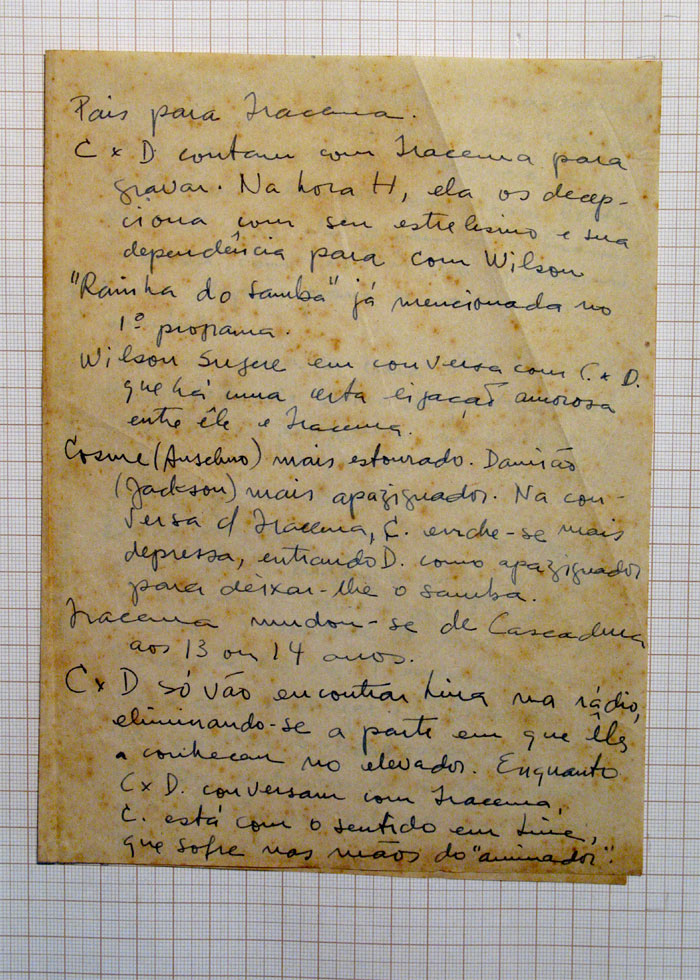 Pais para Iracema.
C x D contam com Iracema para
gravar. Na hora H, ela os decep-
ciona com seu estrelismo e sua
dependência para com Wilson
"Rainha do Samba" já mencionada no
1º programa.
Wilson sugere em conversa com C. x D.
que há uma certa ligação amorosa
entre êle e Iracema.
Cosme (Anselmo) mais estourado. Damião
(Jackson) mais apaziguador. Na con-
versa c/ Iracema, C. enche-se mais
depressa, entrando D. como apaziguador
para deixar-lhe o samba.
Iracema mudou-se de Cascadura
aos 13 ou 14 anos.
C x D só vão encontrar Lina na rádio,
eliminando-se a parte em que êles
a conhecem no elevador. Enquanto
C x D. conversam com Iracema,
C. está com o sentido em Lina,
que sofre nas mãos do "animador".